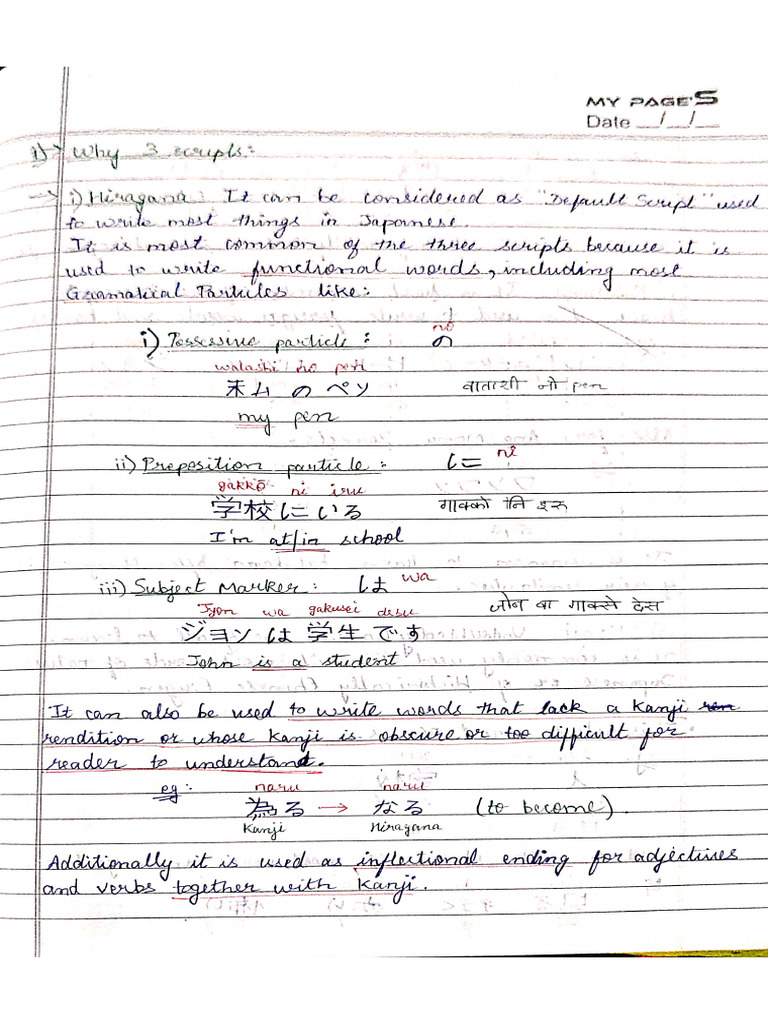 MY PAGE'S
Date __/__/__
1) → Why 3 scripts:
→ i) Hiragana: It can be considered as "Default Script" used
to write most things in Japanese.
It is most common of the three scripts because it is
used to write functional words, including most
Gramatical Particles like:
no
i) Possessive particle: の
watashi no pen
のペン वाताशी नो pen
my pen
ni
ii) Preposition particle: に
gakkō ni iru
学校にいる गाक्को नि इरु
I'm at/in school
iii) Subject Marker: は wa
Jyon wa gakusei desu
ジョンは学生です जोन वा गाक्से देस
John is a student
It can also be used to write words that lack a Kanji
rendition or whose Kanji is obscure or too difficult for
reader to understand.
naru naru
eg: 為る → なる (to become).
Kanji Hiragana
Additionally it is used as inflectional ending for adjectives
and verbs together with Kanji.